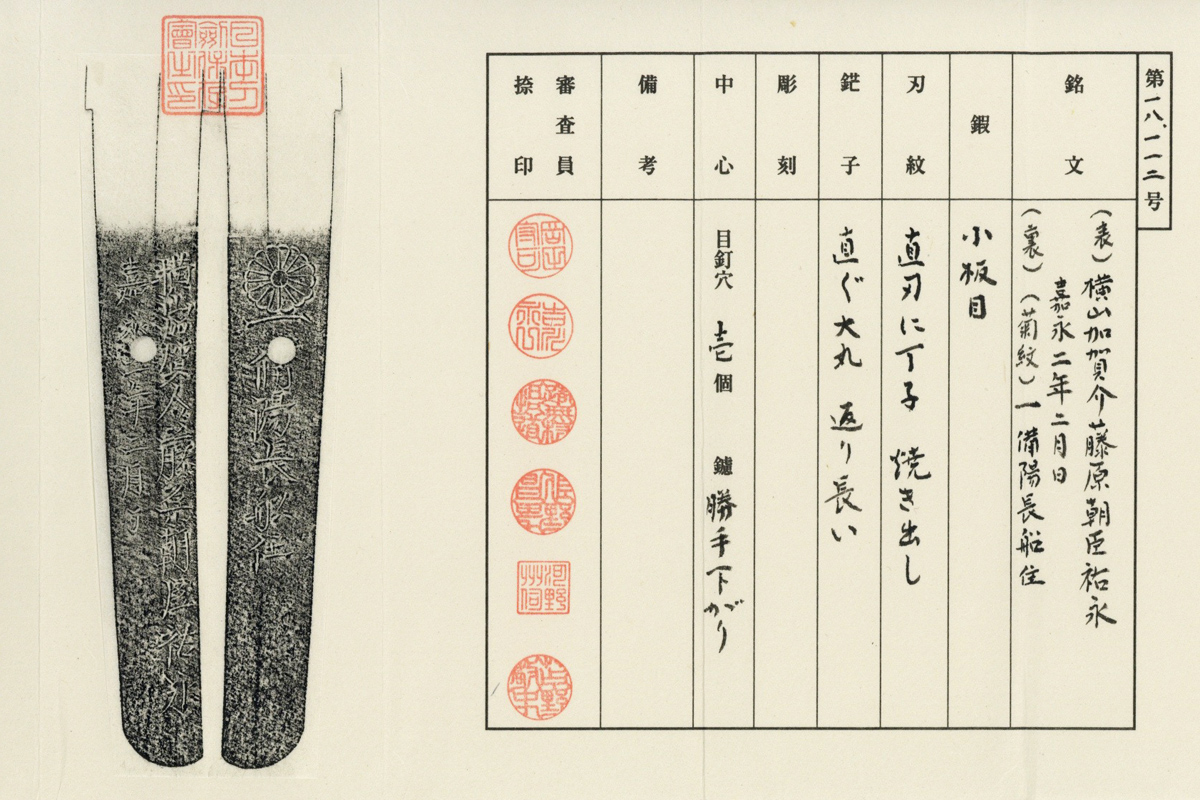 第一八、一一二号
銘文
(表)横山加賀介藤原朝臣祐永
嘉永二年二月日
(裏)(菊紋)一備陽長船住
鍜
小板目
刃紋
直刃に丁子 焼き出し
鋩子
直ぐ大丸 返り長い
彫刻
中心
目釘穴 壱個 鑢 勝手下がり
備考
審査員
捺印
一備陽長船住
横山加賀介藤原朝臣祐永
嘉永二年二月日